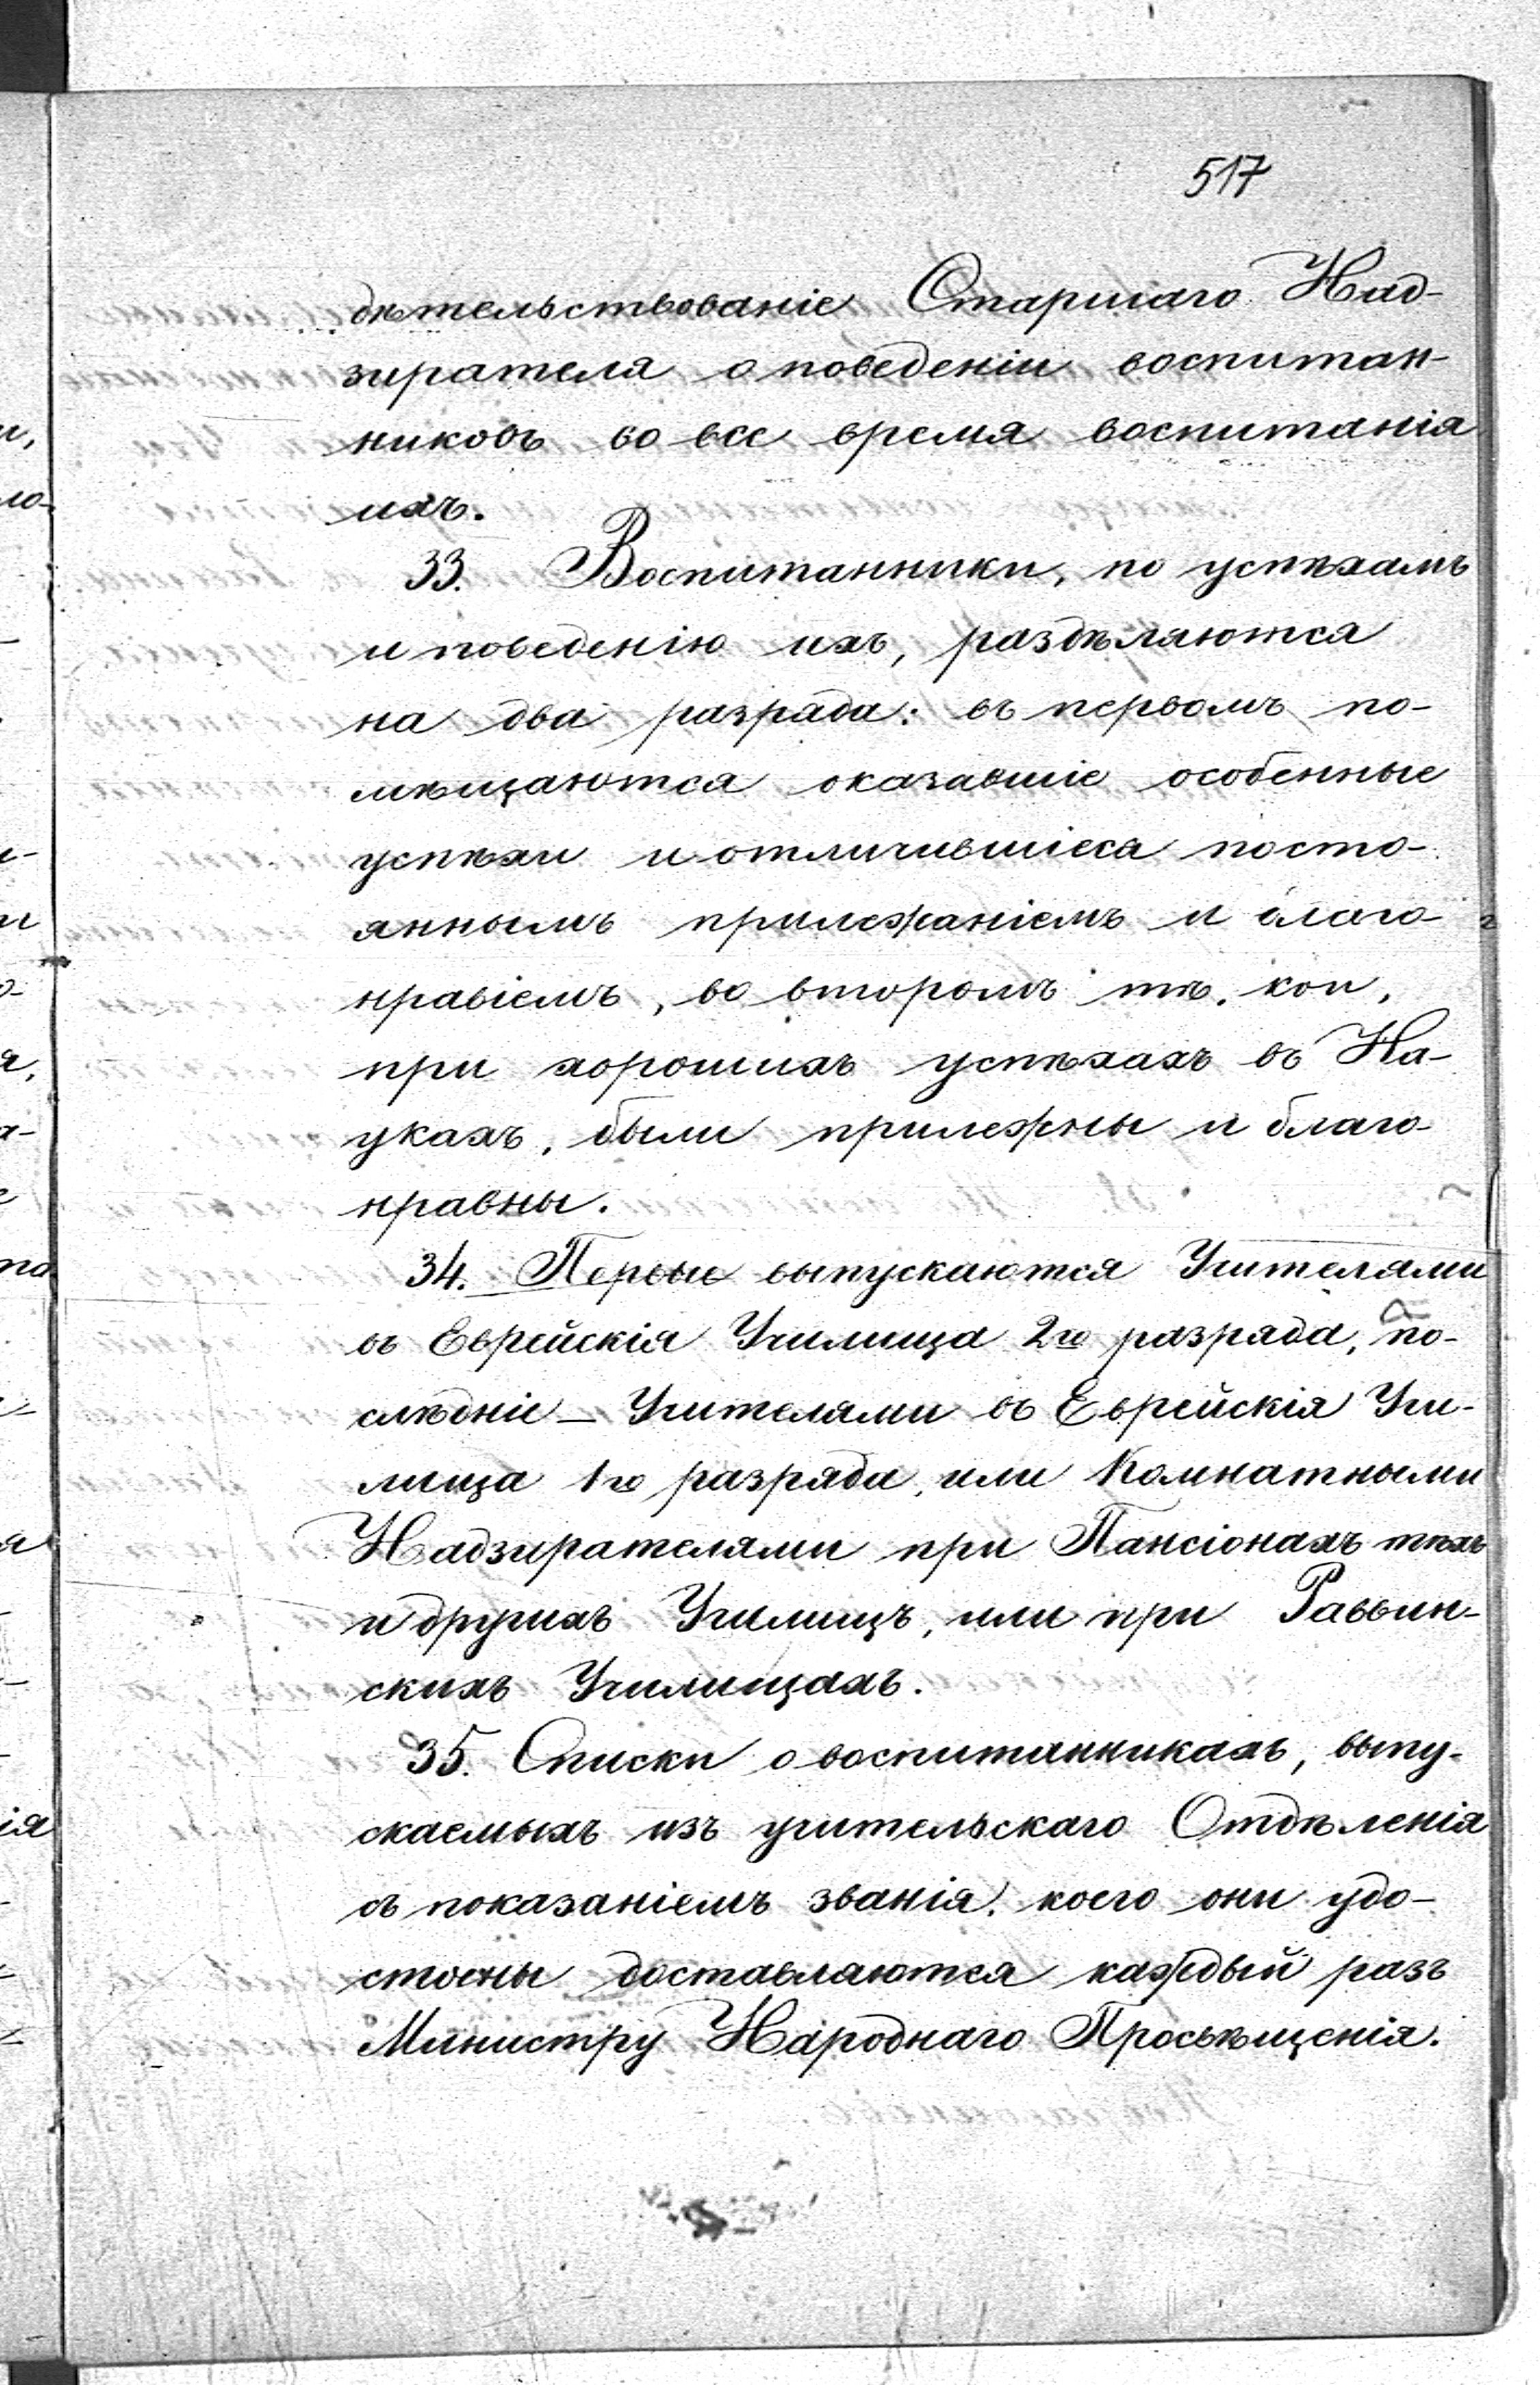 517
дѣтельствованіе Старшаго Над-
зирателя о поведеніи воспитан-
никовъ во все время воспитанія
ихъ.
33. Воспитанники, по успѣхамъ
и поведенію ихъ, раздѣляются
на два разряда: въ первомъ по-
мѣщаются оказавшіе особенные
успѣхи и отличившіеся посто-
яннымъ прилежаніемъ и благо-
нравіемъ, во второмъ тѣ, кои,
при хорошихъ успѣхахъ въ На-
укахъ, были прилежны и благо-
нравны.
34. Первые выпускаются Учителями
въ Еврейскія Училища 2го разряда, по-
слѣдніе – Учителями въ Еврейскія Учи-
лища 1го разряда, или Комнатными
Надзирателями при Пансіонахъ тѣхъ
и другихъ Училищъ, или при Раввин-
скихъ Училищахъ.
35. Списки о воспитанникахъ, выпу-
скаемыхъ изъ учительскаго Отдѣленія
съ показаніемъ званія, коего они удо-
стоены доставляются каждый разъ
Министру Народнаго Просвѣщенія.